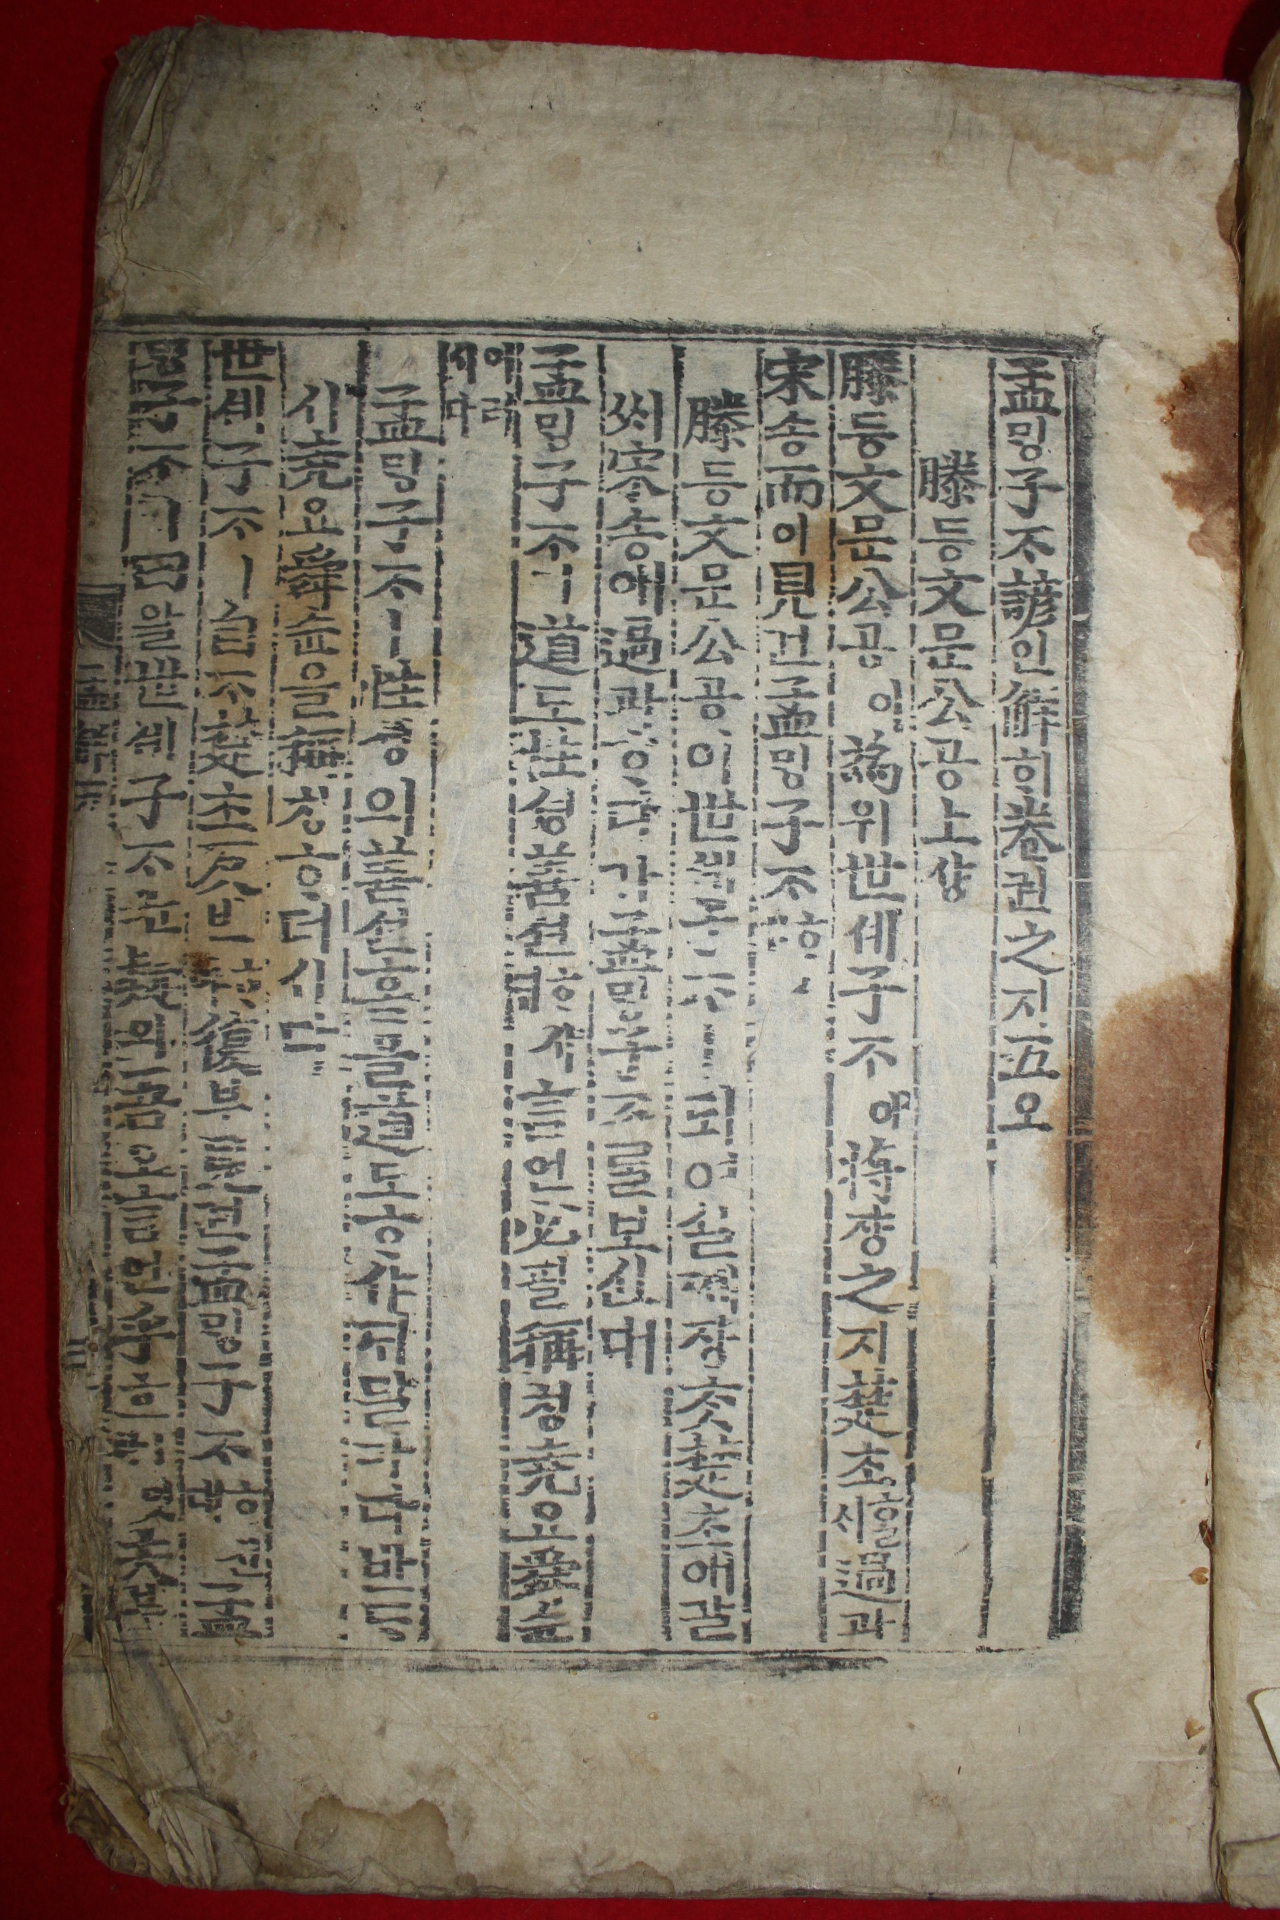 孟밍子ᄌᆞ諺언解ᄒᆡ卷권之지五오
滕등文문公공上샹
滕등文문公공이 爲위世셰子ᄌᆞ애 將쟝之지楚초ᄒᆞᆯᄉᆡ 過과
宋송而이見견孟밍子ᄌᆞᄒᆞ
滕등文문公공이 世셰子ᄌᆞ 되야 실 제 쟝ᄎᆞᆺ 楚초애 갈
ᄉᆡ 宋송애 過과ᄒᆞ다가 孟밍子ᄌᆞᄅᆞᆯ 보신대
孟밍子ᄌᆞㅣ 道도性셩善션ᄒᆞ샤ᄃᆡ 言언必필稱칭堯요舜슌
이러시다
孟밍子ᄌᆞㅣ 性셩의 善션홈을 道도ᄒᆞ샤ᄃᆡ 말마다 반ᄃᆞ
시 堯요舜슌을 稱칭ᄒᆞ더시다
世셰子ᄌᆞㅣ 自ᄌᆞ楚초反반ᄒᆞ야 復부見견孟밍子ᄌᆞᄒᆞᆫ대 孟
밍子ᄌᆞㅣ 曰왈 世셰子ᄌᆞᄂᆞᆫ 疑의吾오言언乎호